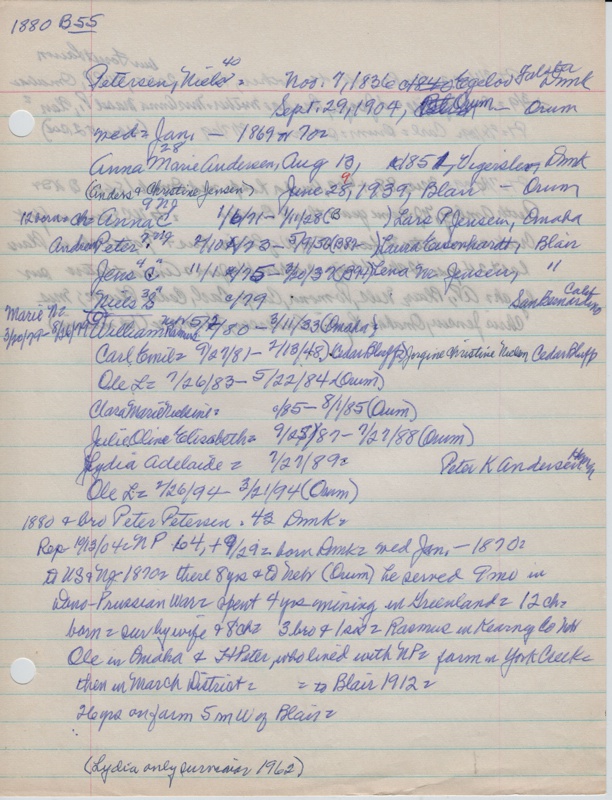 1880 B55
Petersen, Niels 40 = Nov. 7, 1836 c1840 Egelov Falster Dmk
Sept. 29, 1904, Orum — Orum
med = Jan, — 1869 or 70 =
28
Anna Marie Andersen, Aug 13, c1851, Vigerslev, Dmk
(Anders & Christine Jensen) June 28, 1939, Blair — Orum
9
12 born = ch = Anna C. 9 NJ 1/6/71 – 7/11/28 (B ) Lars P. Jensen, Omaha
Andrew Peter 2/10/73 – 5/9/56 ( ) Laura Eisenhardt, Blair
Jens 4 C 11/11/75 – 3/20/37 ( ) Lena M. Jensen, "
Niels 3 S c/79 San Bernardino Calif
Marie N.
3/20/79 – William Rasmus 5/2/80 – 3/11/33 (Omaha)
Carl Emil = 9/27/81 – 2/13/48, Cedar Bluffs = Jorgine Christine Nielsen Cedar Bluff
Ole L = 7/26/83 – 5/22/84 (Orum)
Clara Marie = c/85 – 8/1/85 (Orum)
Julie Oline Elizabeth = 9/25/87 – 7/27/88 (Orum)
Lydia Adelaide = 7/27/89 = Peter K Andersen, Henry
Ole L = 2/26/94 – 3/21/94 (Orum)
1880 & bro Peter Petersen . 43 Dmk =
Rep 10/13/04 = NP 64, + 9/29 = born Dmk = med Jan, – 1870 =
to US & NJ 1870 = there 8 yrs & to Nebr (Orum) he served 9 mo in
Dano-Prussian War = spent 4 yrs mining in Greenland = 12 ch =
born = sur by wife & 8 ch = 3 bro & 1 sis = Rasmus in Kearney Co Neb
Ole in Omaha & H Peter, who lived with NP = farm in York Creek =
then in March District = = to Blair 1912 =
26 yrs on farm 5 m W of Blair =
(Lydia only survivor 1962)